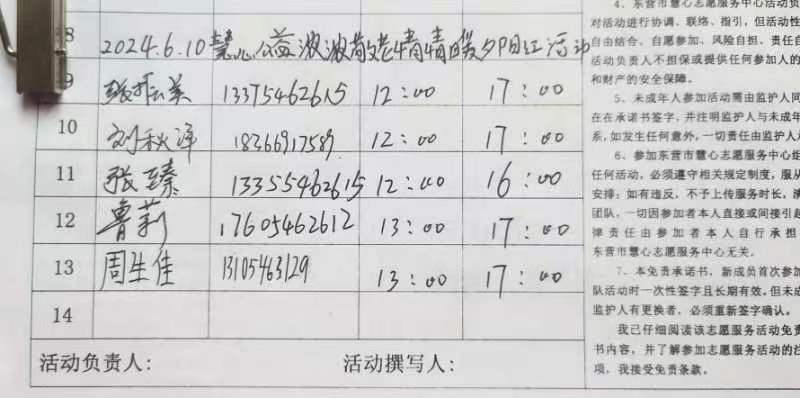 8 2024.6.10慧心公益波波敬老情情暖夕阳红活动
9 张振美 13375462615 12:00 17:00
10 刘秋泽 18366917589 12:00 17:00
11 张臻 13355462615 12:00 16:00
12 鲁莉 17605462612 13:00 17:00
13 周生佳 13105463129 13:00 17:00
14
活动负责人: 活动撰写人:
4、东营市慧心志愿服务中心活动负
对活动进行协调、联络、指引，但活动性
自由结合、自愿参加、风险自担、责任自
活动负责人不担保或提供任何参加人的
和财产的安全保障。
5、未成年人参加活动需由监护人同
在在承诺书签字，并注明监护人与未成年
系，如发生任何意外，一切责任由监护人
6、参加东营市慧心志愿服务中心组
任何活动，必须遵守相关规定制度，服从
安排；如有违反，不予上传服务时长，满
团队，一切因参加者本人直接或间接引起
律责任由参加者本人自行承担
东营市慧心志愿服务中心无关。
7、本免责承诺书，新成员首次参加
队活动时一次性签字且长期有效，但未成
监护人有更换者，必须重新签字确认。
我已仔细阅读该志愿服务活动免责
书内容，并了解参加志愿服务活动的注
项，我接受免责条款。